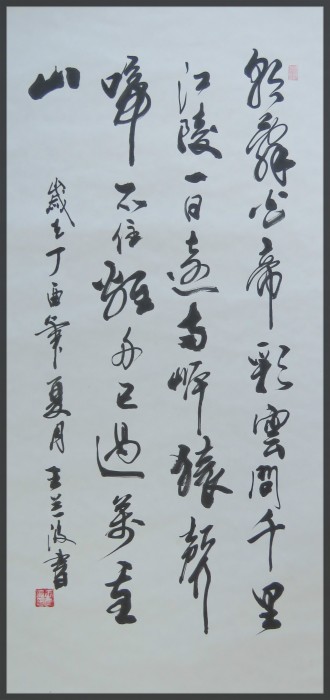 朝辭白帝彩雲間千里
江陵一日還兩岸猿聲
啼不住輕舟已過萬重
山
歲在丁酉年夏月王兰波書